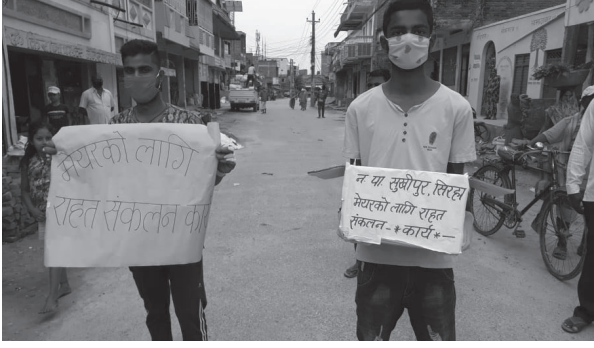 मेयरको लागि
राहत संकलन कार्य
न.पा. सुखीपुर, सिरहा
मेयरको लागि राहत
संकलन -*कार्य*-